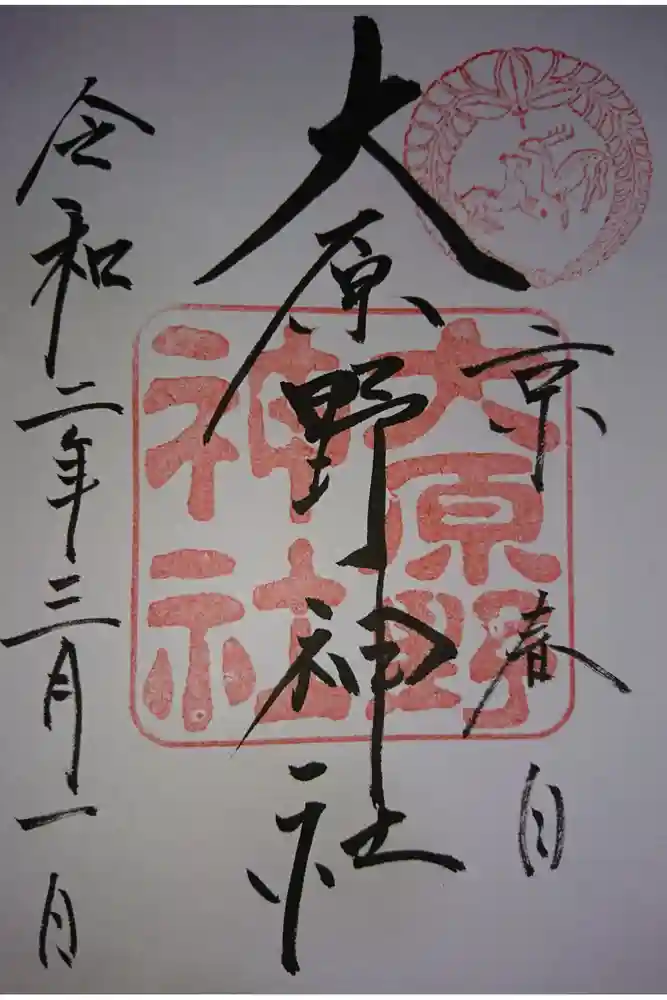 京春日
大原野神社
大原野神社
令和二年三月一日